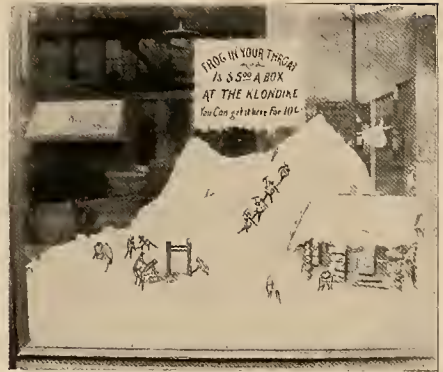 FROG IN YOUR THROAT
IS $5.00 A BOX
AT THE KLONDIKE
You Can get it here For 10¢